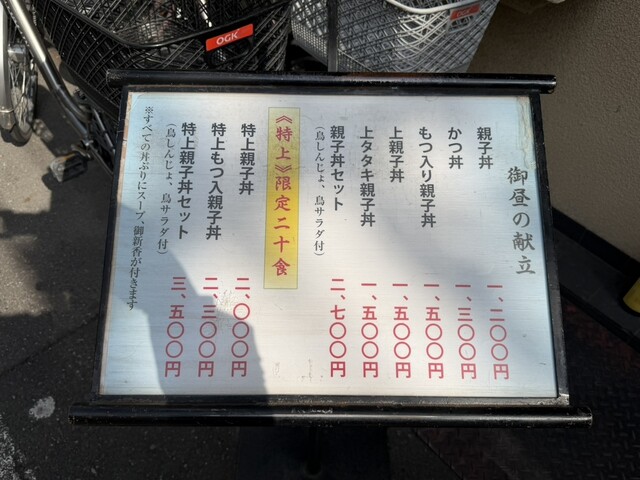 御昼の献立
親子丼 一、二〇〇円
かつ丼 一、三〇〇円
もつ入り親子丼 一、五〇〇円
上親子丼 一、五〇〇円
上タタキ親子丼 一、五〇〇円
親子丼セット 二、七〇〇円
(鳥しんじょ、鳥サラダ付)
《特上》限定二十食
特上親子丼 二、〇〇〇円
特上もつ入親子丼 二、三〇〇円
特上親子丼セット 三、五〇〇円
(鳥しんじょ、鳥サラダ付)
※すべての丼ぶりにスープ、御新香が付きます
OGK